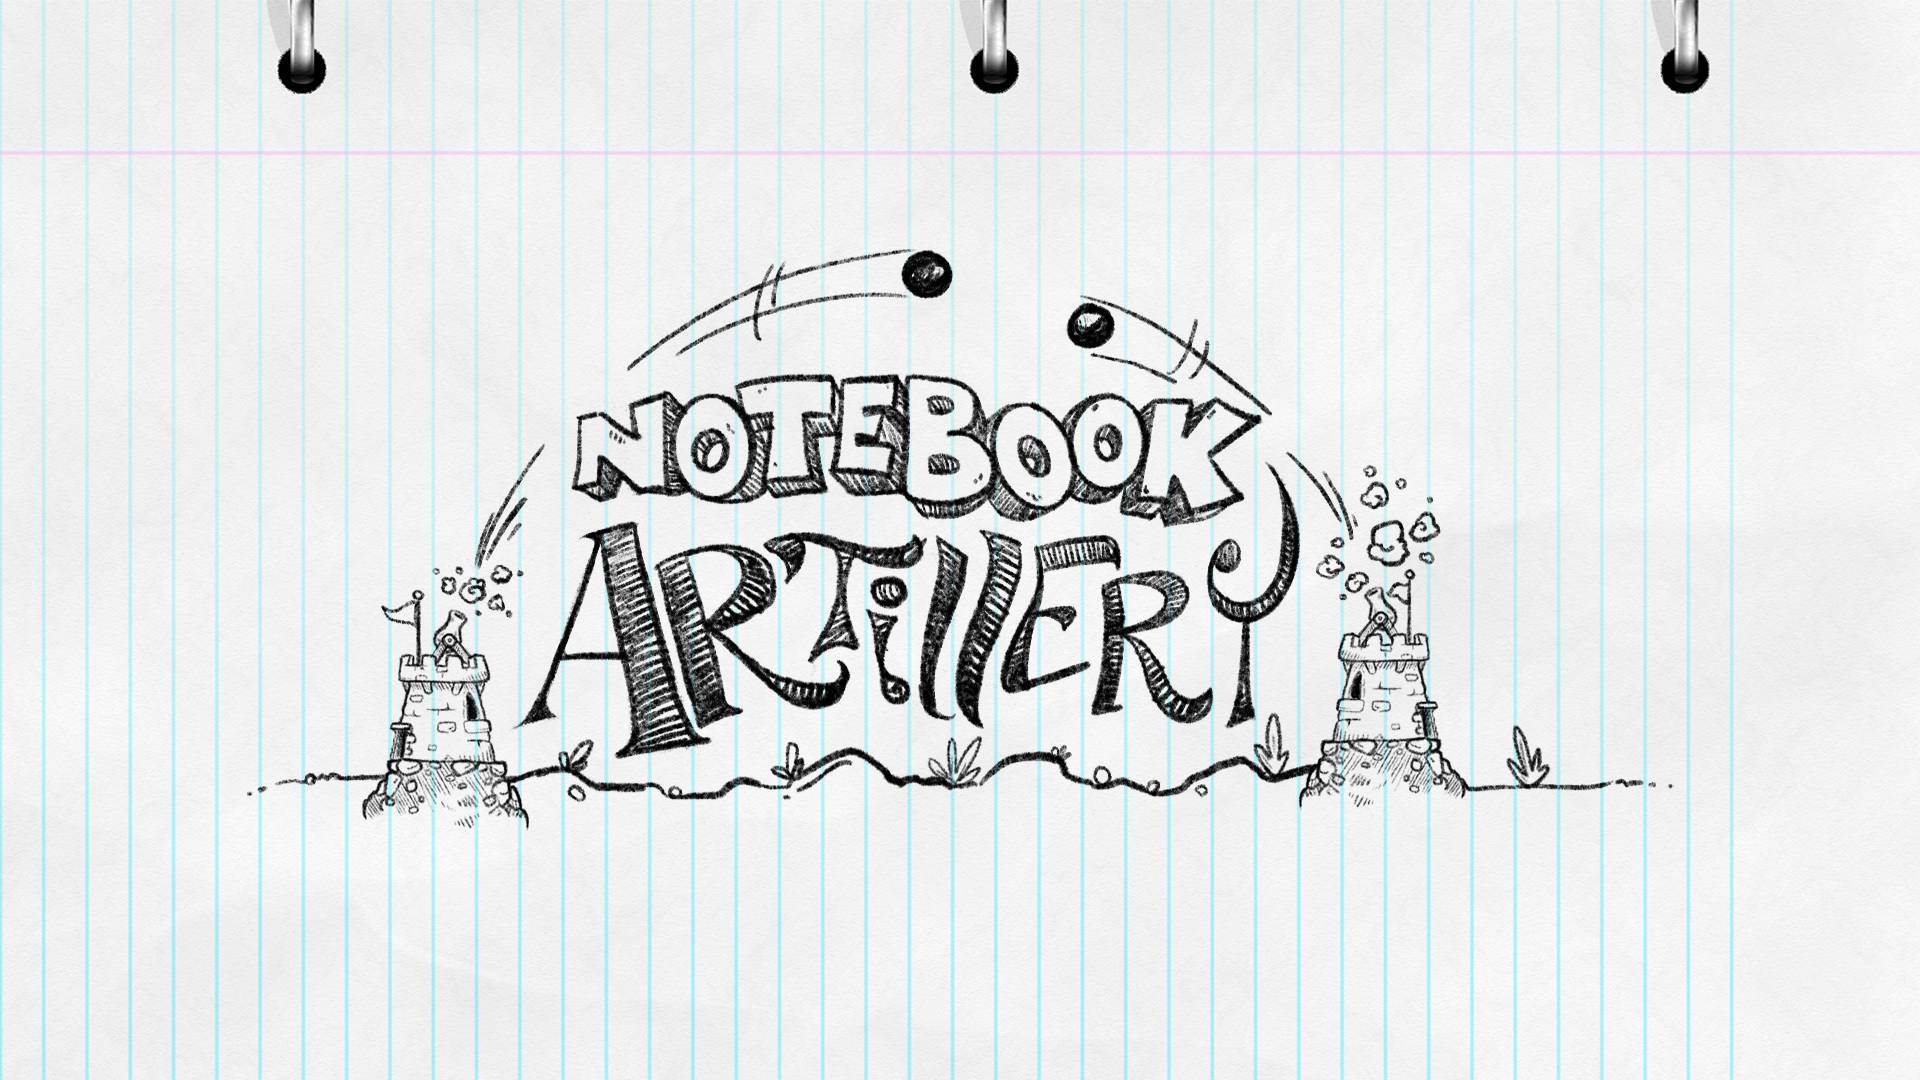 NOTEBOOK
ARTiLLERY